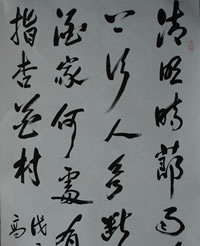 清明時節雨
上行人欲斷
酒家何處有
指杏花村
戊
高